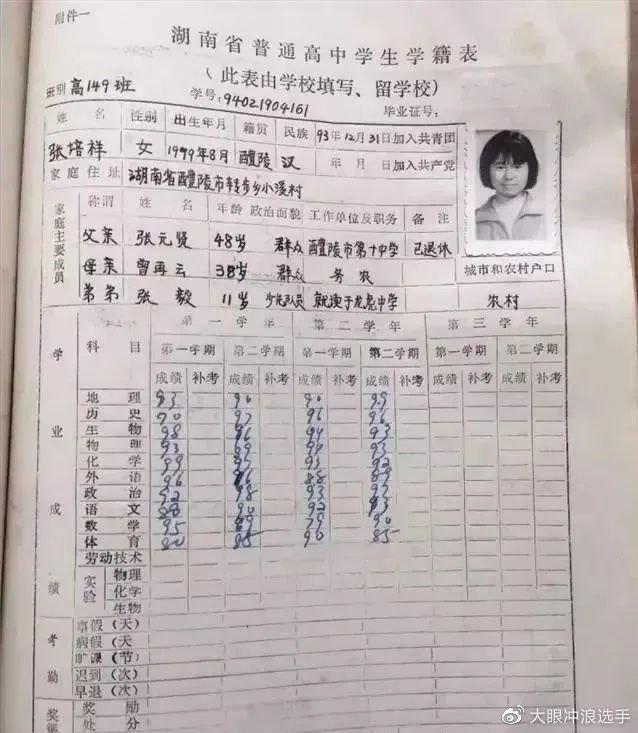 附件一
湖南省普通高中学生学籍表
(此表由学校填写、留学校)
班别 高149班 学号:94021904161 毕业证号:
姓名 性别 出生年月 籍贯 民族 93年12月31日加入共青团
张培祥 女 1979年8月 醴陵 汉 年 月 日加入共产党
家庭住址 湖南省醴陵市 乡小溪村
家庭主要成员 称谓 姓名 年龄 政治面貌 工作单位及职务 备注
父亲 张元贤 48岁 群众 醴陵市第十中学 已退休
母亲 曾再云 38岁 群众 务农 城市和农村户口
弟弟 张毅 11岁 少先队员 就读于龙虎中学 农村
学业成绩 科目 第一学年 第二学年 第三学年
第一学期 第二学期 第一学期 第二学期 第一学期 第二学期
成绩 补考 成绩 补考 成绩 补考 成绩 补考 成绩 补考 成绩 补考
地理 93 90 90 99
历史 90 97 96 96
生物 98 96 94 93
物理 93 89 94 93
化学 99 97 93 92
外语 96 96 88 89
政治 92 98 93 97
语文 88 90 92 93
数学 95 89 79 90
体育 80 85 90 85
劳动技术
实验 物理
化学
生物
考勤 事假(天)
病假(天)
旷课(节)
迟到(次)
早退(次)
奖惩 奖励
处分
大眼冲浪选手